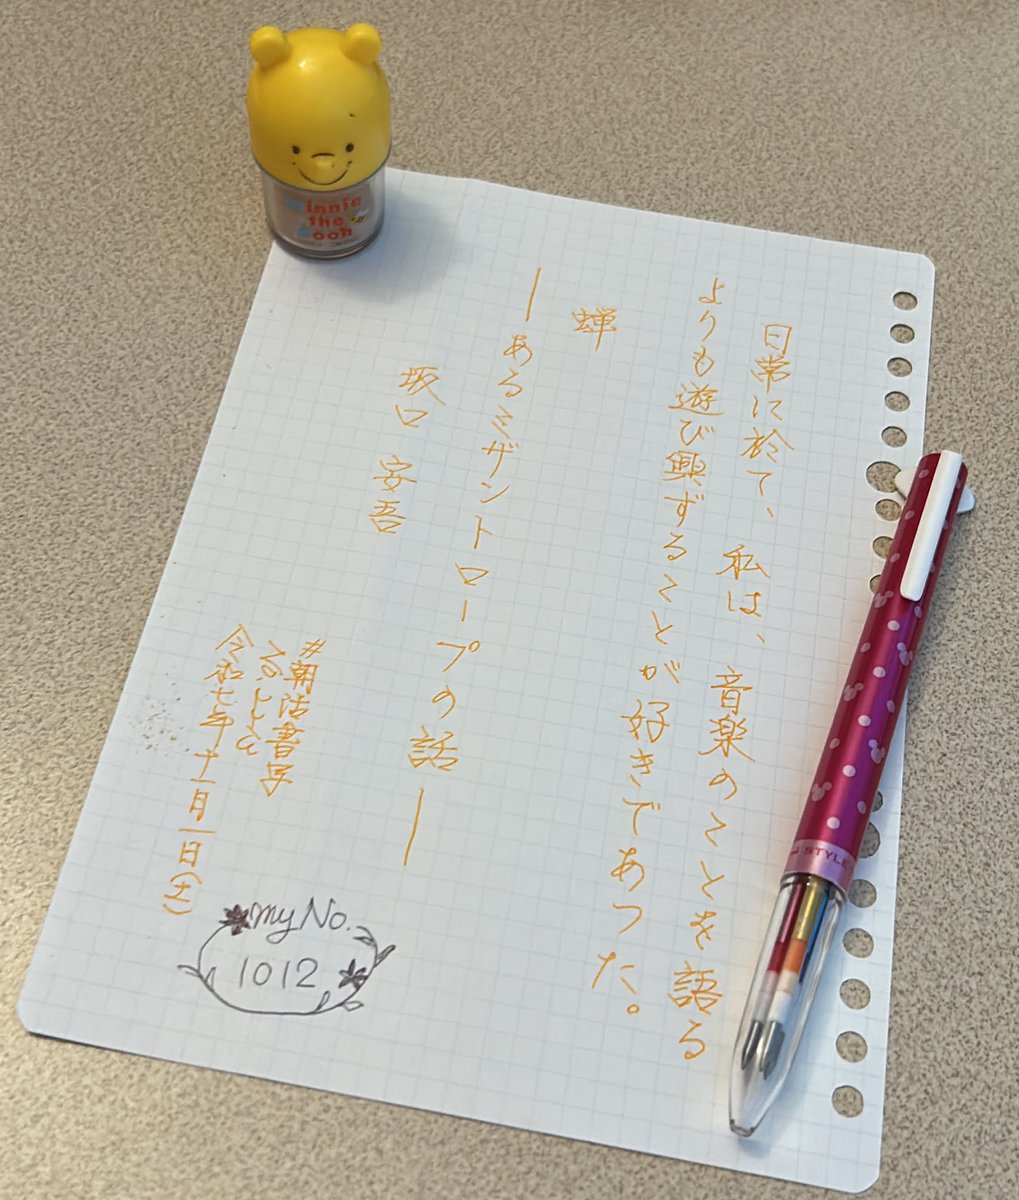 日常に於て、私は、音楽のことを語る
よりも遊び興ずることが好きであつた。
蝉
―あるミザントロープの話―
坂口 安吾
#朝活書写
令和七年十一月一日(土)
my No.
1012
Winnie
the
Pooh
STYLE